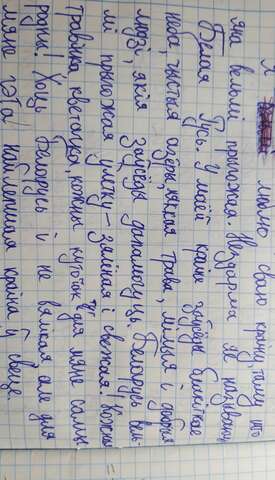 Я люблю сваю краіну, таму што
яна вельмі прыгожая. Нездарма яе называюць
Белая Русь. У маёй краіне заўсёды блакітнае
неба, чыстыя азёры, мяккая трава, мілыя і добрыя
людзі, якія заўсёды дапамогуць. Беларусь вель-
мі прыгожая улетку - зялёная і свежая! Кожная
травінка, кветачка, кожны куточак тут для мяне самы
родны! Хоць Беларусь і не вялікая але для
мяне гэта найлепшая краіна ў свеце.